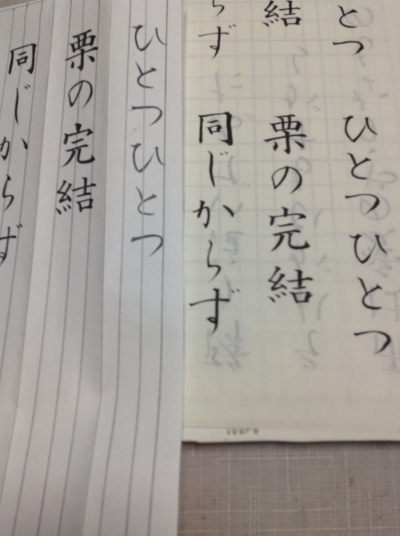 とつ
結
らず
ひとつひとつ
栗の完結
同じからず
ひとつひとつ
栗の完結
同じからず